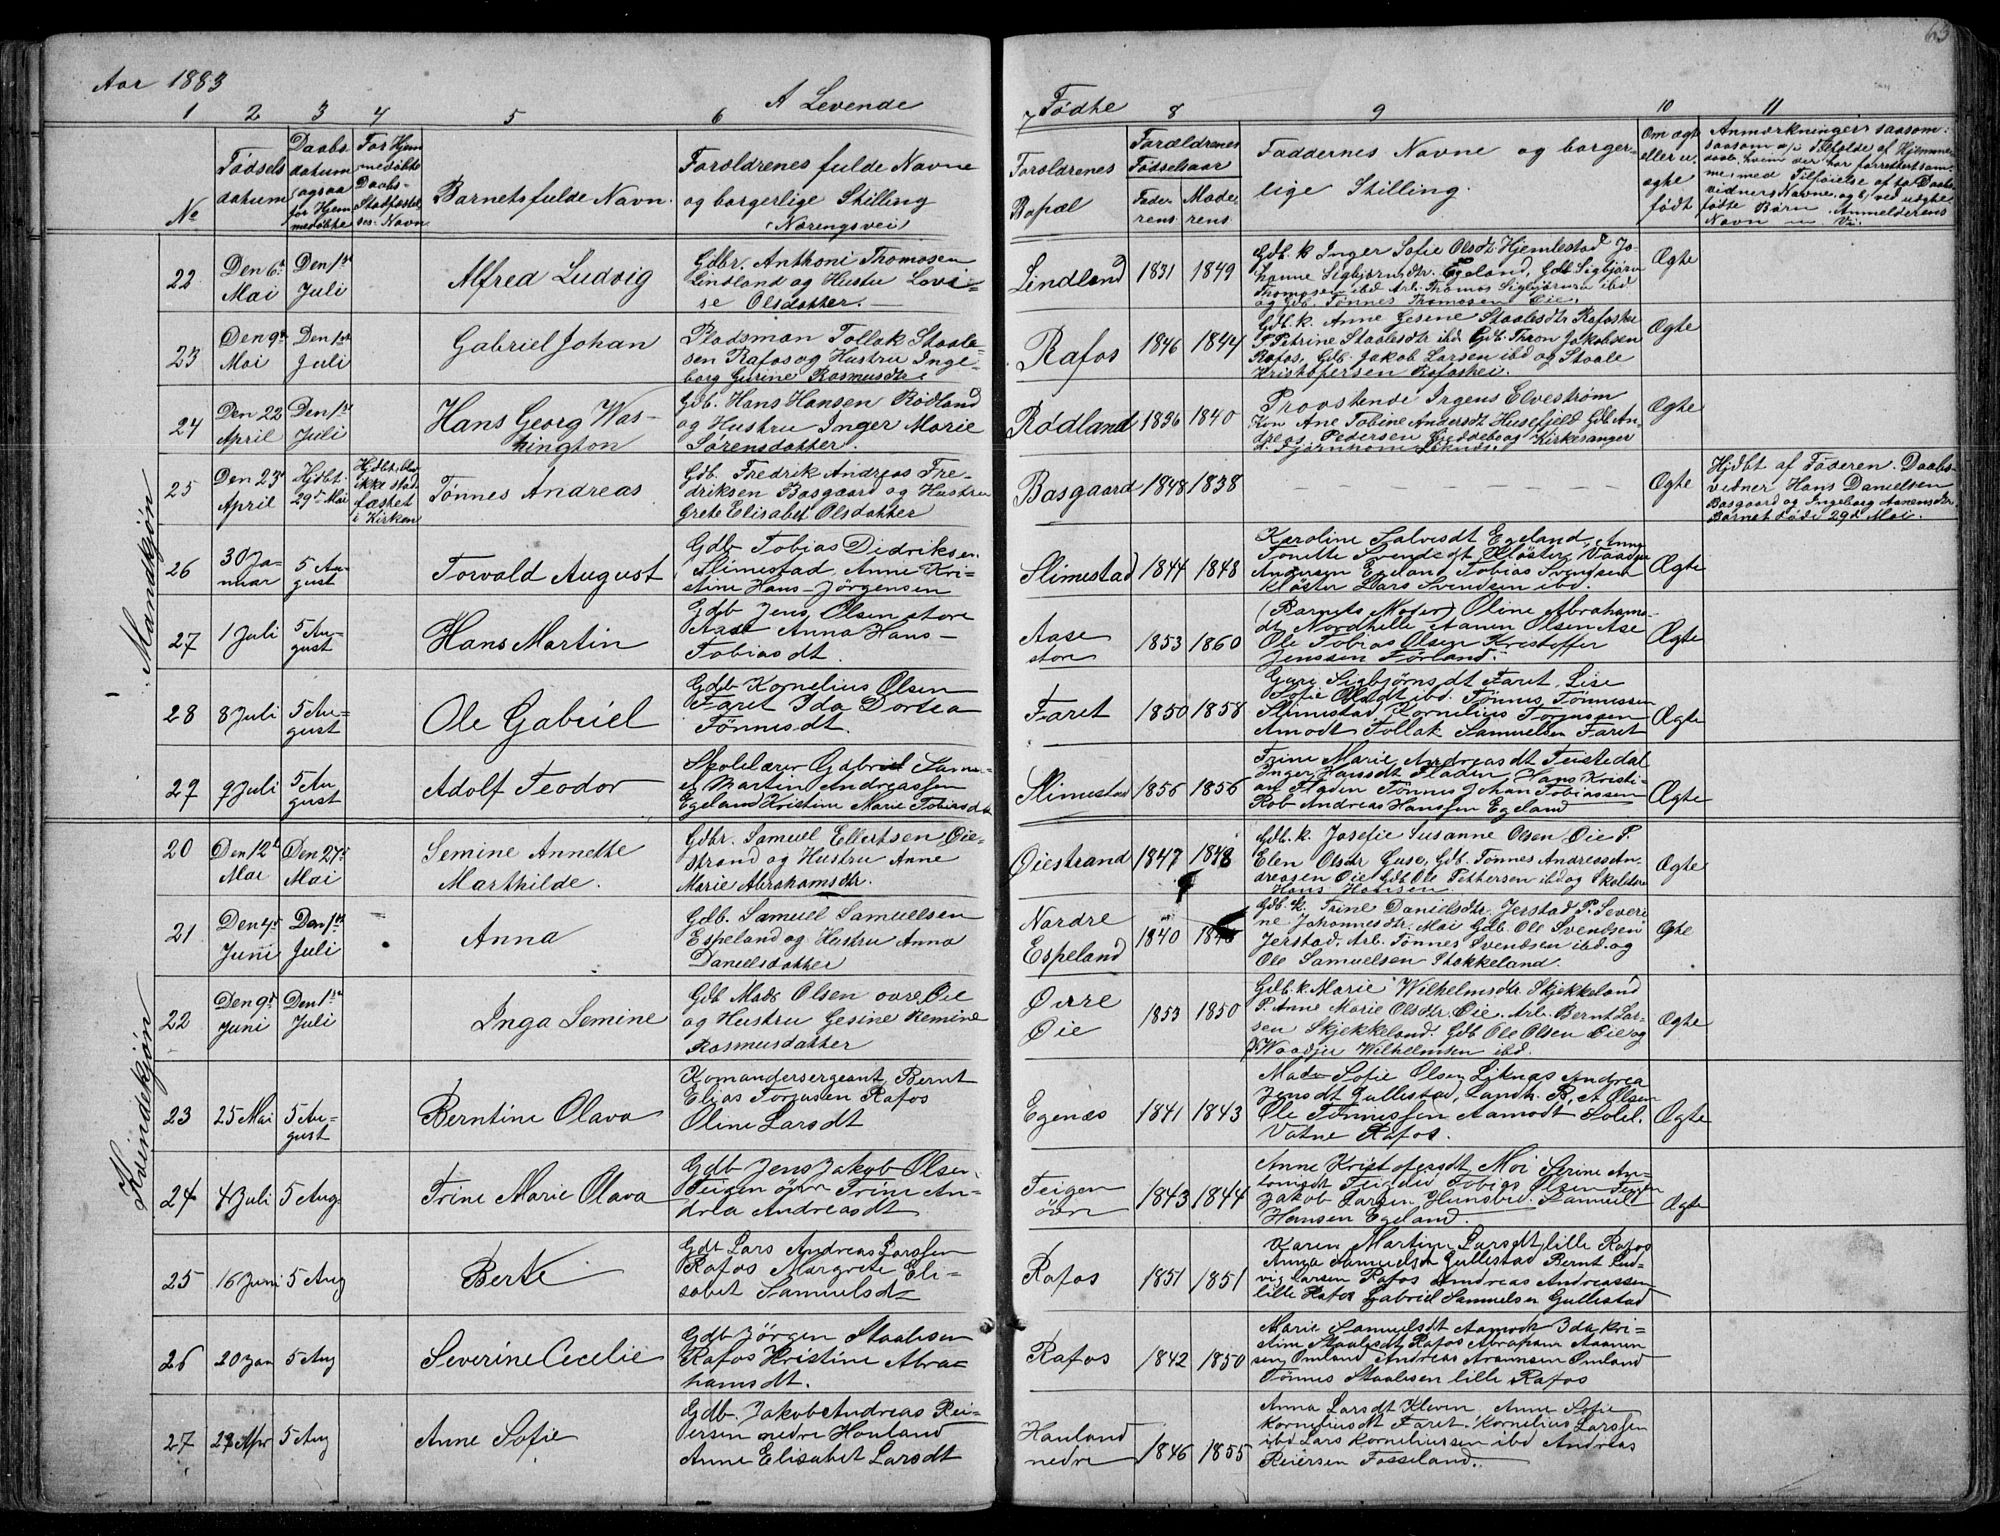 63
Aar 1883
A Levende Fødte
1 2 3 4 5 6 7 8 9 10 11
No
Fødsels
datum
Daabs
datum
(ogsaa
for Hjem
medøbte
For Hjem
medøbte
Daabs-
Stadfæstel
ses Navn
Barnets fulde Navn.
Foroldrenes fulde Navne
og borgerlige Stilling
(Nœringsvei)
Foroldrenes
Bopæl
Forældrenes
Fødselsaar
Fade-
rens
Mode-
rens
Faddernes Navne og borger-
lige Stilling.
Om ægte
eller u-
ægte
født
Anmærkninger saasom:
Mandkjøn
22
Den 6t
Mai
Den 1st
Juli
Alfred Ludvig
Gdbr. Anthoni Thomosen
Lindland og Hustru Lovi-
se Olsdatter. —
Lindland
1831 1849
Gdb. k Inger Sofie Olsdtr. Hjemlestad Jo-
hanne Sigbjørnsdtr. Egeland, Gdb Sigbjørn
Thomosen ibd Arb. Thomas Sigbjørnsen ibd
og Gdb. Tønnes Thomosen Øie.
Ægte
23
Den 9d
Mai
Den 1st
Juli
Gabriel Johan
Pladsman Tollak Staale-
sen Rafos og Hustru Inge-
borg Gurine Rasmusdtr.
Rafos
1846 1844
Gdb. k. Anne Gesene Staalesdtr Rafoshei
P. Petrine Staalesdtr ibd Gdb. Thron Jakobsen
Rafos, Gdb. Jakob Larsen ibd og Staale
Kristofersen Rafoshei.
Ægte
24
Den 22
April
Den 1st
Juli
Hans Georg Was-
hington
Gdb. Hans Hansen Rødland
og Hustru Inger Marie
Sørensdatter.
Rødland
1836 1840
Proostende Irgens Elvestrøm
Kon Ane Tobine Andersdt Husefjeld Gdb An-
dreas Pedersen Geddeborg Kirkesanger
Ægte
25
Den 23d
April
Hjdbt.
29d Mai
Hjdbt, blev
ikke stad
fæstet
i Kirken
Tønnes Andreas
Gdb. Fredrik Andreas Fre-
driksen Basgaard og Hustru
Grete Elisabet Olsdatter
Basgaard
1848 1838
— — — — — — —
Ægte
Hjdbt af Faderen. Daabs-
vidner Hans Danielsen
Basgaard og Ingeborg Aanensdtr
Barnet død 29d Mai.
26
30 Ja-
nuar
5 Au-
gust
Torvald August
Gdb Tobias Didriksen
Slimestad, Anne Kri-
stine Hans-Jørgensen
Slimestad
1844 1848
Karoline Salvesdt Egeland, Anne
Tonette Svendsdt Kløster, Vaadne
Andersen Egeland Tobias Svendsen
Kløster Lars Svendsen ibd.
Ægte
27
1 Juli
5 Au-
gust
Hans Martin
Gdb Jens Olsen store
Aase Anna Hans-
Tobiasdt.
Aase
store
1853 1860
(Barnets Moder) Oline Abrahams-
dt Nordhelle Aanen Olsen Ase
Ole Tobias Olsen Kristoffer
Jenssen Førland.
Ægte
28
8 Juli
5 Au-
gust
Ole Gabriel
Gdb Kornelius Olsen
Faret Ida Dortea
Tønnesdt.
Faret
1850 1858
Guri Sigbjørnsdt Faret, Lise
Sofie Olsdt ibd. Tønnes Tønnessen
Slimestad Kornelius Torjussen
Amodt Tollak Samuelsen Faret
Ægte
29
9 Juli
5 Au-
gust
Adolf Teodor
Skolelærer Gabriel Samu-
el Martin Andreassen
Egeland Kristine Marie Tobiasdt
Slimestad
1856 1856
Trine Marie Andreasdt Feistedal
Inger Hansdt Fladen, Hans Kristi-
an Fladen Tønnes Johan Tobiassen
Rob Andreas Hanssen Egeland
Ægte
Kvindekjøn
20
Den 12t
Mai
Den 27d
Mai
Semine Annette
Marthilde.
Gdbr. Samuel Ellertsen Øie-
strand og Hustru Anne
Marie Abrahamsdtr.
Øiestrand
1847 1848
Gdb. k. Josefie Susanne Olsen Øie P.
Elen Olsdtr Guse, Gdb. Tønnes Andreas An-
dreasen Øie Gdb Ole Pettersen ibd og Skolelærer
Hans Hansen
Ægte
21
Den 4d
Juni
Den 1st
Juli
Anna
Gdb. Samuel Samuelsen
Espeland og Hustru Anna
Danielsdatter
Nordre
Espeland
1840
Gdb. k. Trine Danielsdtr. Jerstad P. Severi
ne Johannesdtr. Moi Gdb. Ole Svendsen
Jerstad. Arb. Tønnes Svendsen ibd. og
Ole Samuelsen Stokkeland.
Ægte
22
Den 9d
Juni
Den 1st
Juli
Inga Semine
Gdb Mads Olsen øvre Øie
og Hustru Gesine Remine
Rasmusdatter
Øvre
Øie
1853 1850
Gdb. k. Marie Wilhelmsdtr. Skjekkeland
P. Anne Marie Olsdtr. Øie. Arb. Bernt Lar-
sen Skjekkeland. Gdb Ole Olsen Øie og
Waadjer Wilhelmsen ibd.
Ægte
23
25 Mai
5 Au-
gust
Berntine Olava
Komandersergeant Bernt
Elias Torjusen Rafos
Oline Larsdt
Egenæs
1841 1843
Mad. Sofie Olsen Liknæs Andrea
Jensdt Gullestad, Landh. B. A Olsen
Ole Tønnessen Aamodt,
Vatne Rafos.
Ægte
24
4 Juli
5 Aug.
Trine Marie Olava
Gdb Jens Jakob Olsen
Teigen øvr Trine An-
drea Andreasdt
Teigen
øvr
1843 1844
Anne Kristofersdt Moi Serine An-
tonsdt Teigen Tobias Olsen Teigen
Jakob Larsen Hunsbed Samuel
Hansen Egeland.
Ægte
25
16 Juni
5 Aug
Berte
Gdb Lars Andreas Larssen
Rafos Margrete Eli-
sabet Samuelsdt
Rafos
1851 1851
Karen Martin Larsdt lille Rafos
Anna Samuelsdt Gullestad Bernt Lud-
vig Larsen Rafos Andreas Andreassen
lille Rafos Gabriel Samuelsen Gullestad
26
20 Jan
5 Aug
Severine Cecelie
Gdb Jørgen Staalesen
Rafos Kristine Abra-
hamsdt.
Rafos
1842 1850
Marie Samuelsdt Aamodt Ida Kri-
stine Staalesdt Rafos Abraham Aanen-
sen Omland Andreas Aanensen Omland
Tønnes Staalesen lille Rafos
27
Apr
5 Aug
Anne Sofie
Gdb. Jakob Andreas Rei-
ersen nedre Hauland
Anne Elisabet Larsdt
Hauland
nedre
1846 1855
Anna Larsdt Kleven Anne Sofie
Korneliusdt Faret. Kornelius Larssen
ibd Lars Korneliussen ibd Andreas
Reiersen Fosseland.